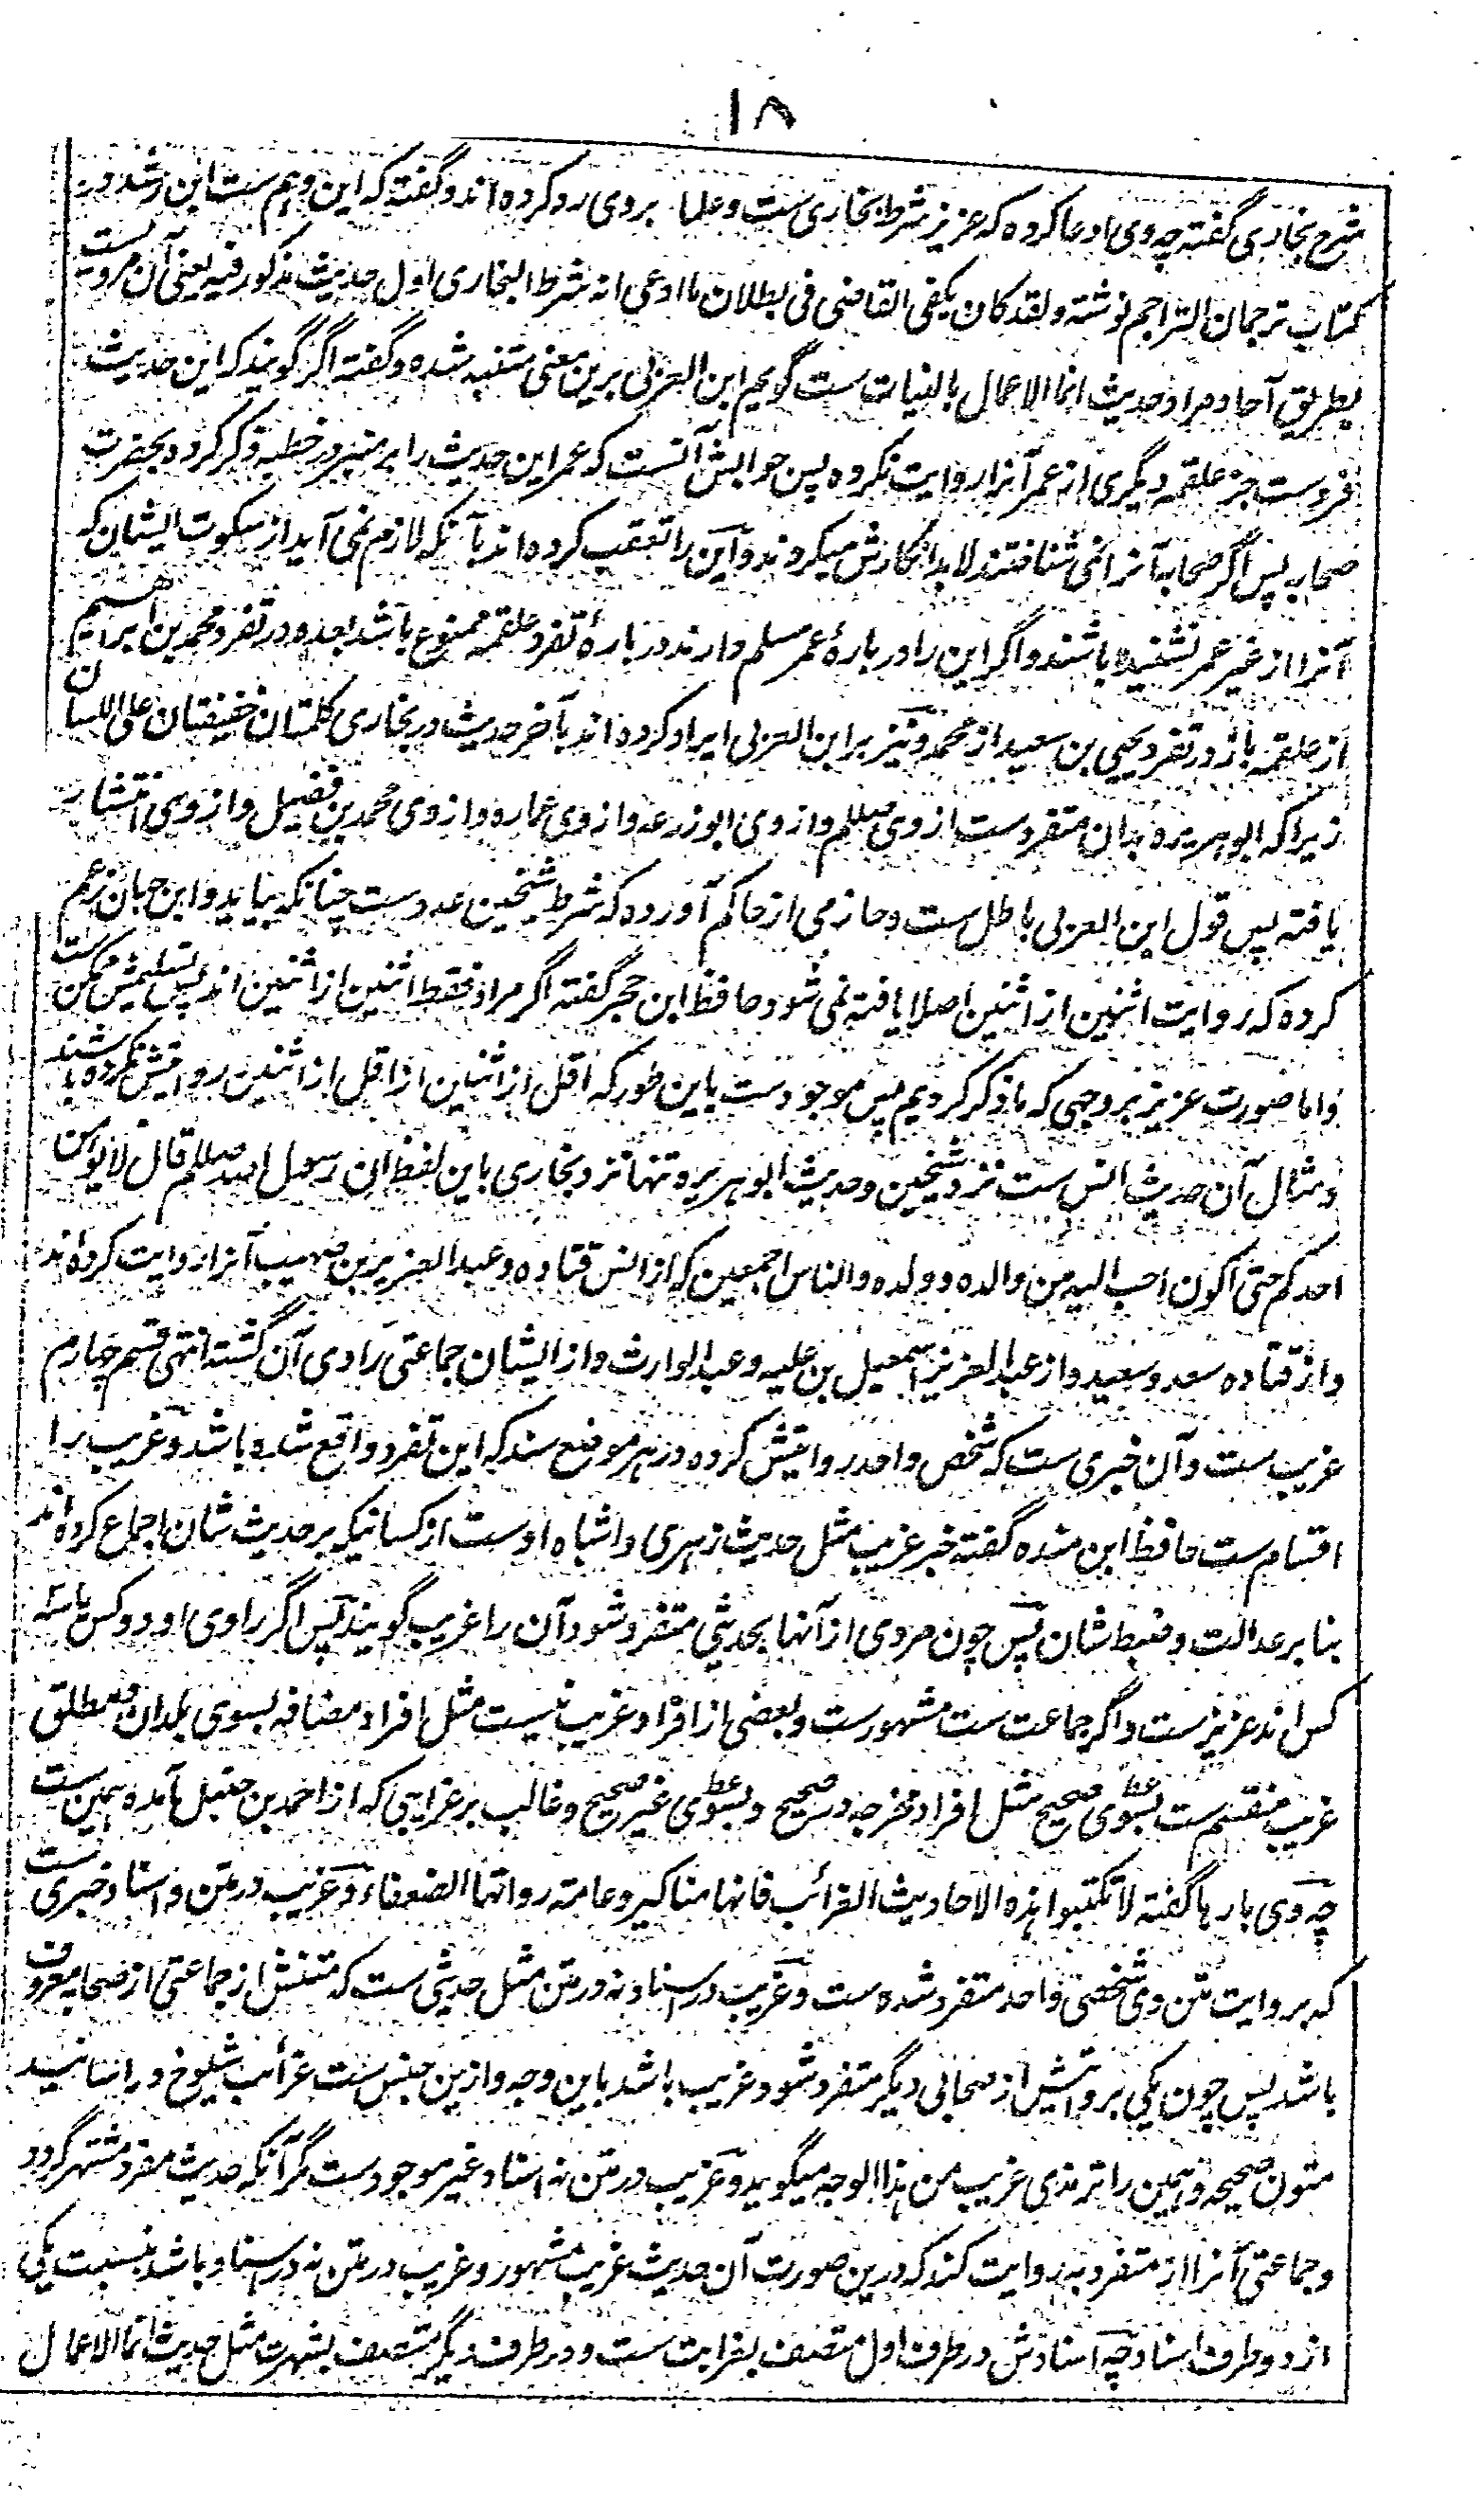 ۱۸
شرح بخاری گفته چه وی ادعا کرده که عزیز شرط بخاری ست و علما بروی رد کرده اند و گفته که این وهم ست ابن رشد در
کتاب ترجمان التراجم نوشته ولقد کان یکفی القاضی فی بطلان ما ادعی انه شرط البخاری اول حدیث مذکور فیه یعنی آن مرویست
بطریق آحاد و مراد حدیث انما الاعمال بالنیات ست گویم ابن العزلی برین معنی متنبه شده و گفته اگر گویند که این حدیث
فردست جز علقمه دیگری از عمر آنرا روایت نکرده پس جوابش آنست که عمر این حدیث را بر منبر در خطبه ذکر کرده بحضرت
صحابه پس اگر صحابه آنرا نمی شناختند لابد انکارش میکردند و این را تعقب کرده اند بآنکه لازم نمی آید از سکوت ایشان که
آنرا از غیر عمر نشنیده باشند و اگر این را در بارهٔ عمر مسلم دارند در بارهٔ تفرد علقمه ممنوع باشد بعده در تفرد محمد بن ابراهیم
از علقمه باز در تفرد یحیی بن سعید از محمد و نیز بر ابن العزلی ایراد کرده اند بآخر حدیث در بخاری کلمتان خفیفتان علی اللسان
زیرا که ابو هریره بدان متفردست از وی صلعم و از وی ابو زرعه و از وی عماره و از وی محمد بن فضیل و از وی انتشار
یافته پس قول ابن العزلی باطل ست و حازمی از حاکم آورده که شرط شیخین عددست چنانکه بیاید و ابن حبان زعم
کرده که روایت اثنین از اثنین اصلا یافته نمی شود و حافظ ابن حجر گفته اگر مراد فقط اثنین از اثنین اند پس تسلیمش ممکن ست
و اما صورت عزیز بروجهی که ما ذکر کردیم پس موجودست باین طور که اقل از اثنین از اقل از اثنین روایتش نکرده باشند
و مثال آن حدیث انس ست نزد شیخین و حدیث ابو هریره تنها نزد بخاری باین لفظ ان رسول الله صلعم قال لا یؤمن
احدکم حتی اکون احب الیه من والده و ولده والناس اجمعین که از انس قتاده و عبد العزیز بن صهیب آنرا روایت کرده اند
و از قتاده سعد و سعید و از عبد العزیز اسمعیل بن علیه و عبد الوارث و از ایشان جماعتی راوی آن گشته انتهی قسم چهارم
غریب ست و آن خبری ست که شخص واحد روایتش کرده در هر موضع سند که این تفرد واقع شده باشد و غریب را
اقسام ست حافظ ابن منده گفته خبر غریب مثل حدیث زهری و اشباه اوست از کسانیکه بر حدیث شان اجماع کرده اند
بنا بر عدالت و ضبط شان پس چون مردی از آنها بحدیثی متفرد شود آن را غریب گویند پس اگر راوی او دو کس یا سه
کس اند عزیز ست و اگر جماعت ست مشهورست و بعضی از افراد غریب نیست مثل افراد مضافه بسوی بلدان و مطلق
غریب منقسم ست بسوی صحیح مثل افراد مخرجه در صحیح و بسوی غیر صحیح و غالب بر غرایبی که از احمد بن حنبل آمده همین ست
چه وی بارها گفته لا تکتبوا هذه الاحادیث الغرائب فانها مناکیر و عامة رواتها الضعفاء و غریب در متن و اسناد خبری ست
که بروایت متن وی شخصی واحد متفرد شده ست و غریب در اسناد نه در متن مثل حدیثی ست که متنش از جماعتی از صحابه معروف
باشد پس چون یکی بروایتش از صحابی دیگر متفرد شود غریب باشد باین وجه و ازین جنس ست غرائب شیوخ در اسانید
متون صحیحه و همین را ترمذی غریب من هذا الوجه میگوید و غریب در متن نه اسناد غیر موجودست مگر آنکه حدیث مفرد مشتهر گردد
و جماعتی آنرا از متفرد به روایت کند که درین صورت آن حدیث غریب مشهور و غریب در متن نه در اسناد باشد بنسبت یکی
از دو طرف اسناد چه اسنادش در طرف اول متصف بغرابت ست و در طرف دیگر متصف بشهرت مثل حدیث انما الاعمال